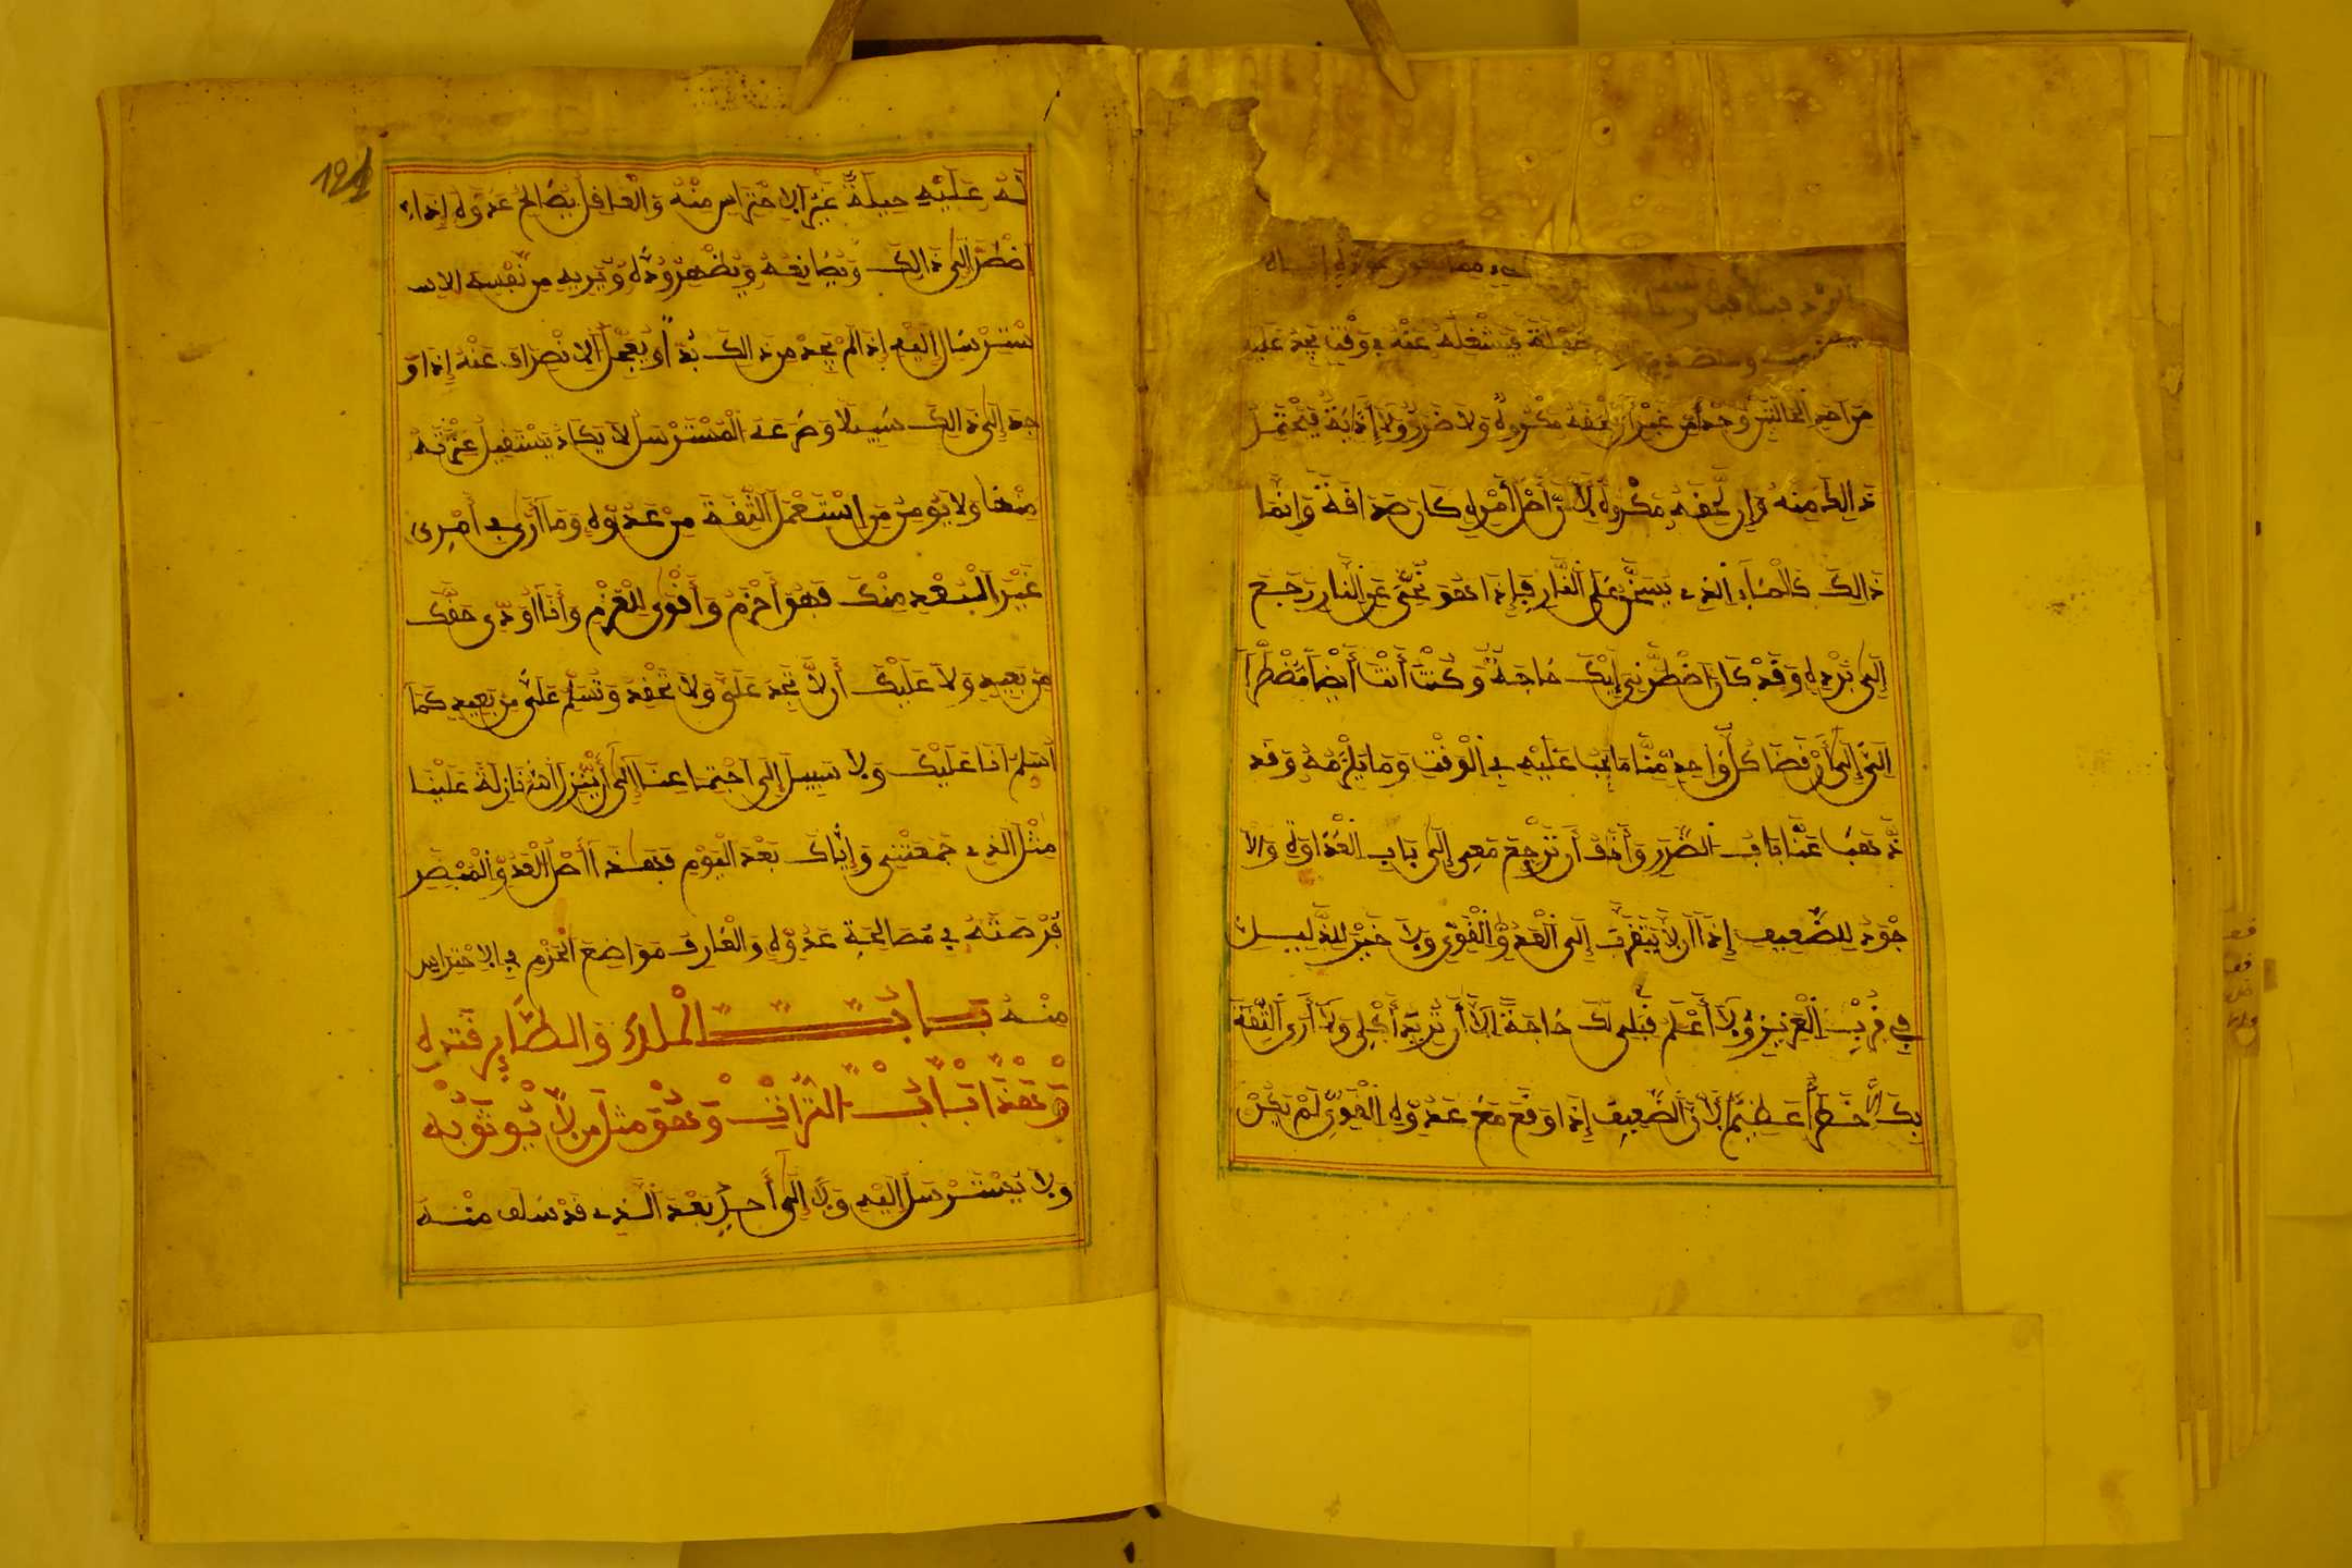 من احد الحالتين وحده من غير ان يلحقه مكروه ولا ضرر ولا إذاية فيحتمل
ذالك منه وإن لحقه مكروه لأن أصل أمره كان صداقة وإنما
ذالك كالماء الذي يسخن على النار فإذا هو نحّي عن النار رجع
إلى برده وقد كان اضطرني إليك حاجة وكنت أنت أيضا مضطرا
إليّ إلى أن قضا كل واحد منا ما يجب عليه في الوقت وما يلزمه وقد
ذهب عنا باب الضرر وأخاف أن ترجع معي إلى باب العداوة ولا
جود للضعيف إذا أن لا يتقرب إلى العدو القوي ولا خير للذليل
في قرب العزيز ولا أعلم قبلي لك حاجة إلا أن تريد أكلي ولا أرى الثقة
بك إلا خطرا عظيما لأن الضعيف إذا وقع مع عدوه القوي لم يكن
له عليه حيلة غير الاحتراس منه والعاقل يصالح عدوه إذا
اضطر إلى ذالك ويصانعه ويظهر وده ويريه من نفسه الاس
سترسال إليه إذا لم يجد من ذالك بدا ويعجل الانصراف عنه إذا و
جد إلى ذالك سبيلا وصرعة المسترسل لا يكاد يستقيل عثرته
منها ولا يومن من استعمل الثقة من عدوه وما أرى في أمرى
غير البعد منك فهو أحزم وأقوى للعزم وأنا أودى حقك
من بعيد ولا عليك أن لا تجد علي ولا تحقد وتسلم علي من بعيد كما
أسلم أنا عليك ولا سبيل إلى اجتماعنا إلى أن ينزل الله نازلة علينا
مثل الذي جمعتني وإياك بعد اليوم فهذا أصل العدو المبصر
فرصته في مصالحة عدوه والعارف مواضع الحزم في الاحتراس
منه باب الملك والطاير فتره
وهذا باب الترات وهو مثل من لا يوثق به
ولا يسترسل إليه ولا إلى أحد بعد الذي قد سلف منه
121